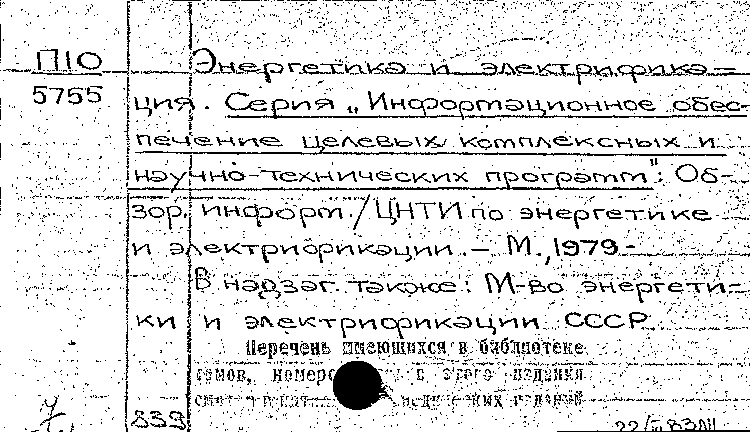 П10
5755
Энергетика и электрифика=
ция. Серия „Информационное обес-
печение целевых комплексных и
научно-технических программ": Об-
зор. информ./ЦНТИ по энергетике
и электрификации. — М., 1979-
В надзаг. также: М-во энергети-
ки и электрификации СССР
Перечень имеющихся в библиотеке
томов, номеров этого издания
839